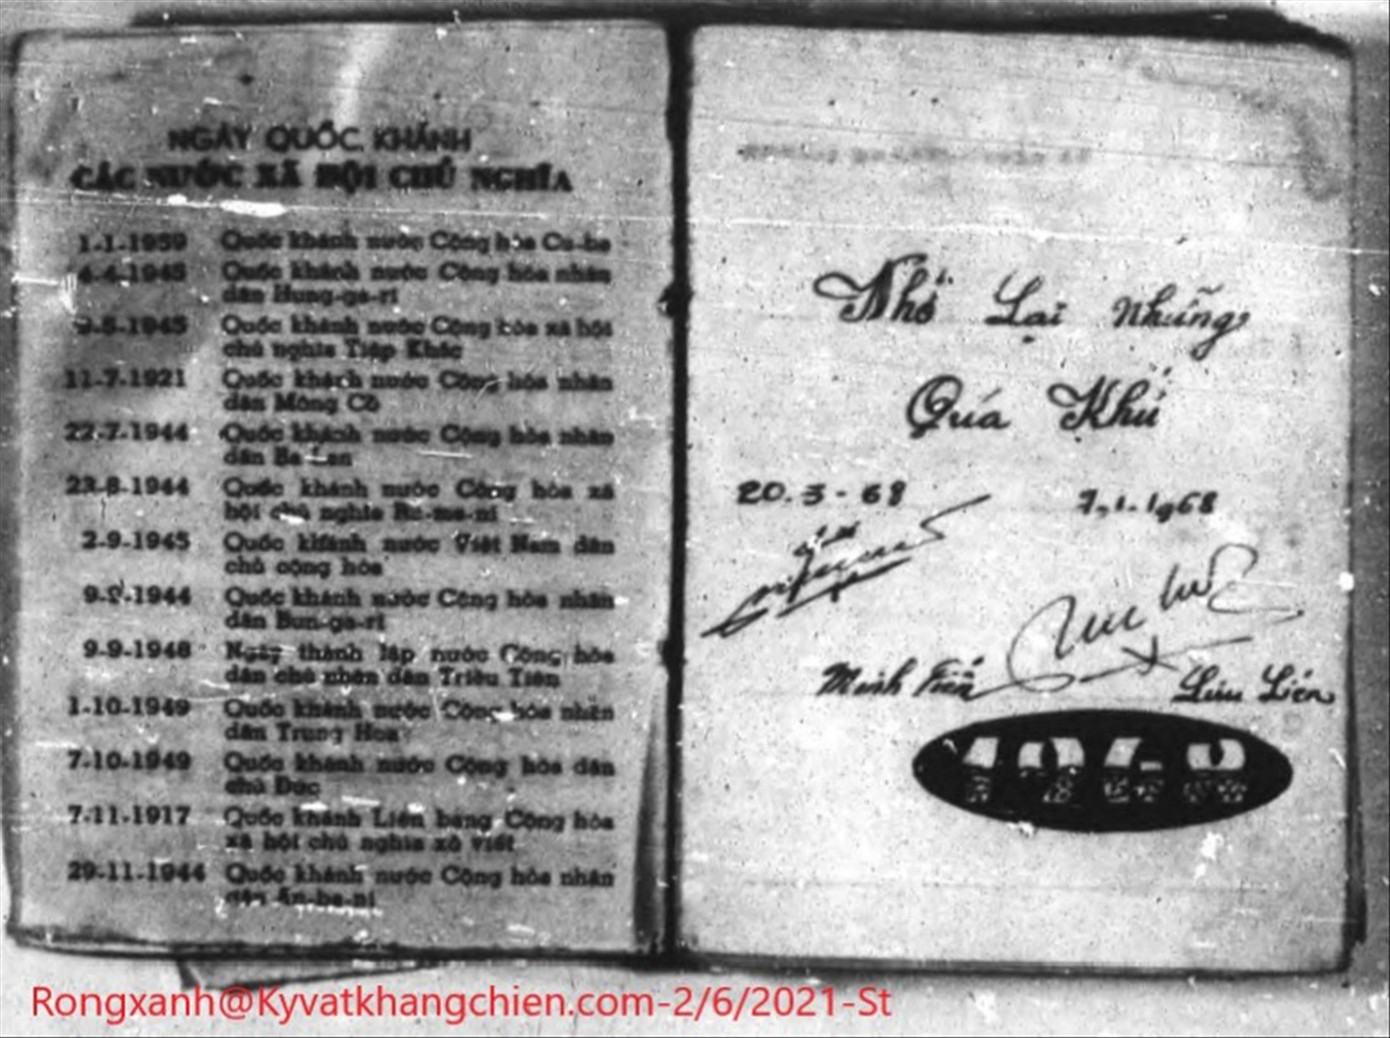 NGÀY QUỐC KHÁNH
CÁC NƯỚC XÃ HỘI CHỦ NGHĨA
1-1-1959 Quốc khánh nước Cộng hòa Cu-ba
4-4-1945 Quốc khánh nước Cộng hòa nhân
dân Hung-ga-ri
9-5-1945 Quốc khánh nước Cộng hòa xã hội
chủ nghĩa Tiệp Khắc
11-7-1921 Quốc khánh nước Cộng hòa nhân
dân Mông Cổ
22-7-1944 Quốc khánh nước Cộng hòa nhân
dân Ba Lan
23-8-1944 Quốc khánh nước Cộng hòa xã
hội chủ nghĩa Ru-ma-ni
2-9-1945 Quốc khánh nước Việt Nam dân
chủ cộng hòa
9-9-1944 Quốc khánh nước Cộng hòa nhân
dân Bun-ga-ri
9-9-1948 Ngày thành lập nước Cộng hòa
dân chủ nhân dân Triều Tiên
1-10-1949 Quốc khánh nước Cộng hòa nhân
dân Trung Hoa
7-10-1949 Quốc khánh nước Cộng hòa dân
chủ Đức
7-11-1917 Quốc khánh Liên bang Cộng hòa
xã hội chủ nghĩa xô viết
29-11-1944 Quốc khánh nước Cộng hòa nhân
dân An-ba-ni
Nhớ Lại Những
Quá Khứ
20.3-68 7.1.1968
Minh Tiến Lưu Liên
Rongxanh@Kyvatkhangchien.com-2/6/2021-St